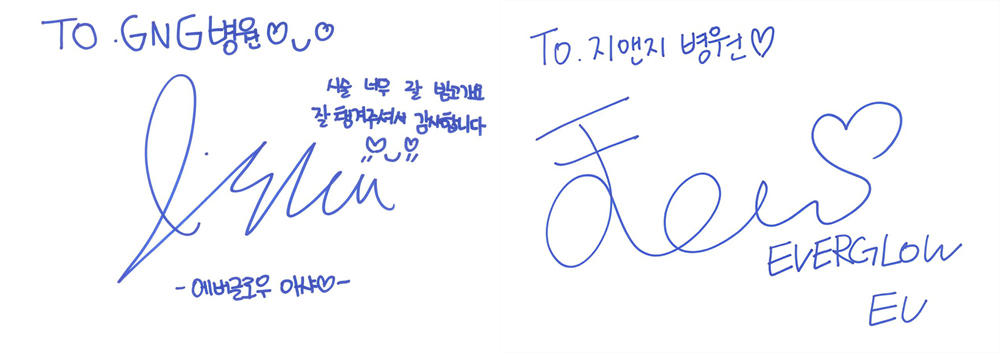 TO. GNG병원♡‿♡
시술 너무 잘 받고가요
잘 챙겨주셔서 감사합니다
-에버글로우 아샤♡-
To. 지앤지 병원♡
EVERGLOW
EU